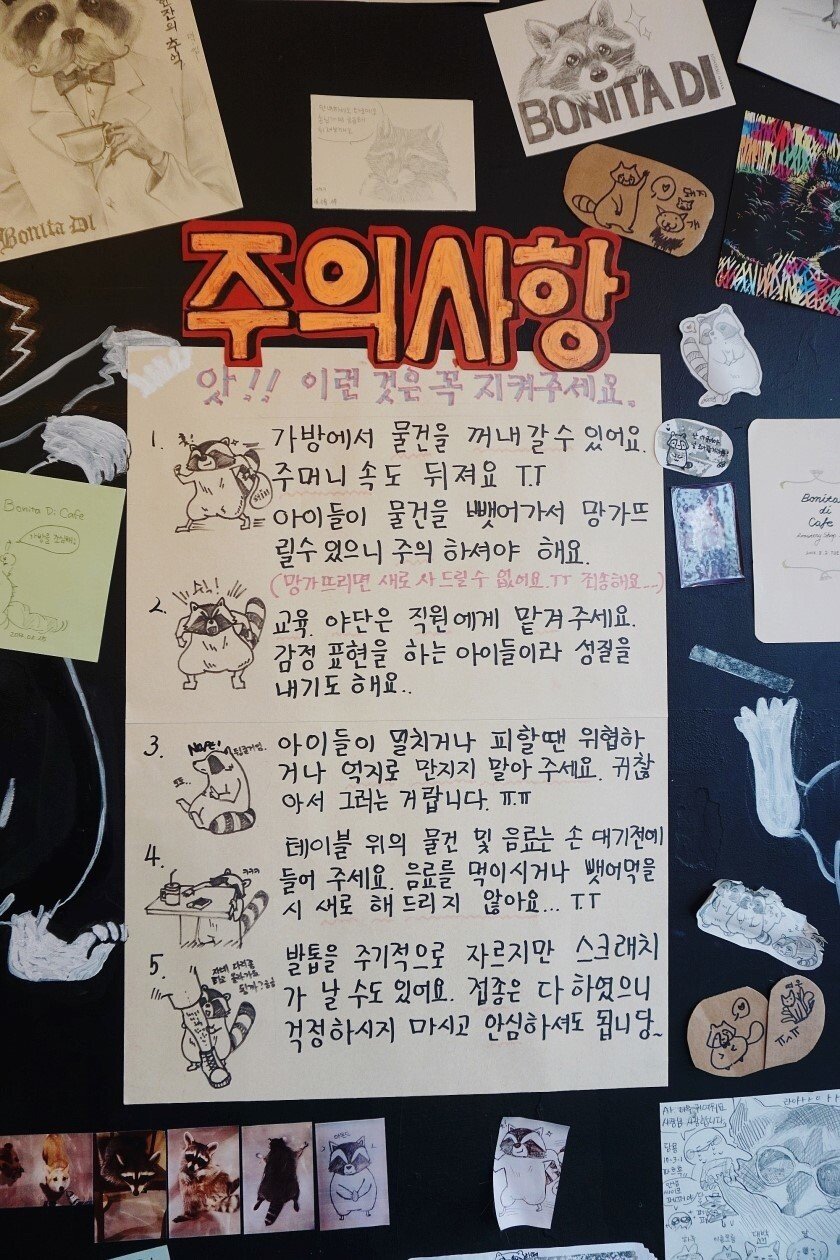 한간의 추억
Bonita DI
BONITA DI
돼지
개
주의사항
앗!! 이런 것은 꼭 지켜주세요.
1. 가방에서 물건을 꺼내 갈 수 있어요.
주머니 속도 뒤져요 T.T
아이들이 물건을 뺏어가서 망가뜨
릴 수 있으니 주의 하셔야 해요.
(망가뜨리면 새로 사 드릴 수 없어요.TT 죄송해요...)
2. 교육. 야단은 직원에게 맡겨주세요.
감정 표현을 하는 아이들이라 성질을
내기도 해요..
3. 아이들이 밀치거나 피할땐 위협하
거나 억지로 만지지 말아 주세요. 귀찮
아서 그러는 거랍니다. ㅠ.ㅠ
4. 테이블 위의 물건 및 음료는 손 대기전에
들어 주세요. 음료를 먹이시거나 뺏어먹을
시 새로 해 드리지 않아요... T.T
5. 발톱을 주기적으로 자르지만 스크래치
가 날 수도 있어요. 접종은 다 하였으니
걱정하시지 마시고 안심하셔도 됩니당~
Bonita Di Cafe
Bonita
di
Cafe
ㅠㅅㅠ